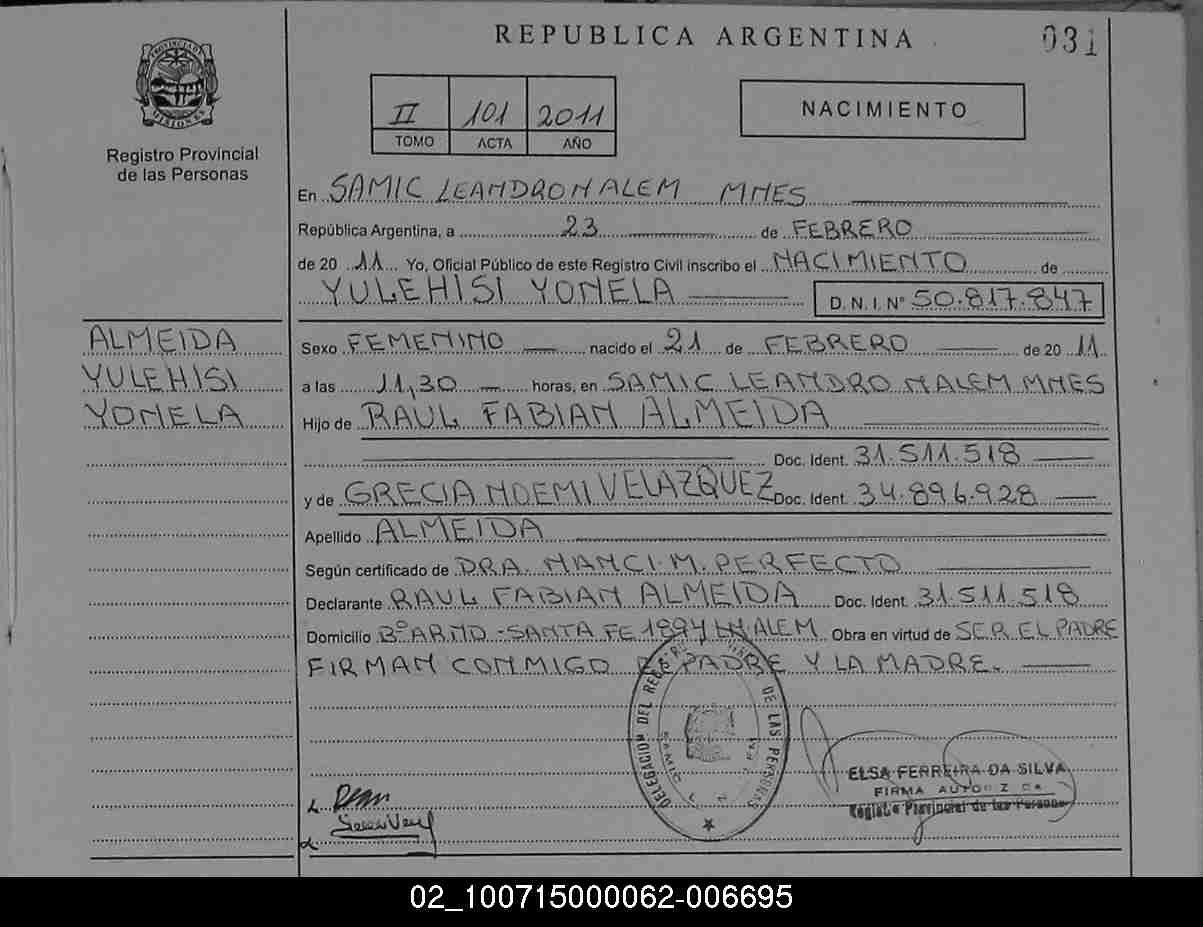 REPUBLICA ARGENTINA
031
PROVINCIA DE MISIONES
Registro Provincial
de las Personas
II 101 2011
TOMO ACTA AÑO
NACIMIENTO
En SAMIC LEANDRO N ALEM MNES
República Argentina, a 23 de FEBRERO
de 20 11 Yo, Oficial Público de este Registro Civil inscribo el NACIMIENTO de
YULEHISI YONELA D.N.I. Nº 50.817.847
ALMEIDA
YULEHISI
YONELA
Sexo FEMENINO nacido el 21 de FEBRERO de 20 11
a las 11,30 horas, en SAMIC LEANDRO N ALEM MNES
Hijo de RAUL FABIAN ALMEIDA
Doc. Ident. 31.511.518
y de GRECIA NOEMI VELAZQUEZ Doc. Ident. 34.896.928
Apellido ALMEIDA
Según certificado de DRA. NANCI. M. PERFECTO
Declarante RAUL FABIAN ALMEIDA Doc. Ident. 31.511.518
Domicilio Bº ARMD - SANTA FE 1894 LN ALEM Obra en virtud de SER EL PADRE
FIRMAN CONMIGO EL PADRE Y LA MADRE.
DELEGACION DEL REGISTRO DE LAS PERSONAS
SAMIC
ELSA FERREIRA DA SILVA
FIRMA AUTORIZADA
Registro Provincial de las Personas
02_100715000062-006695